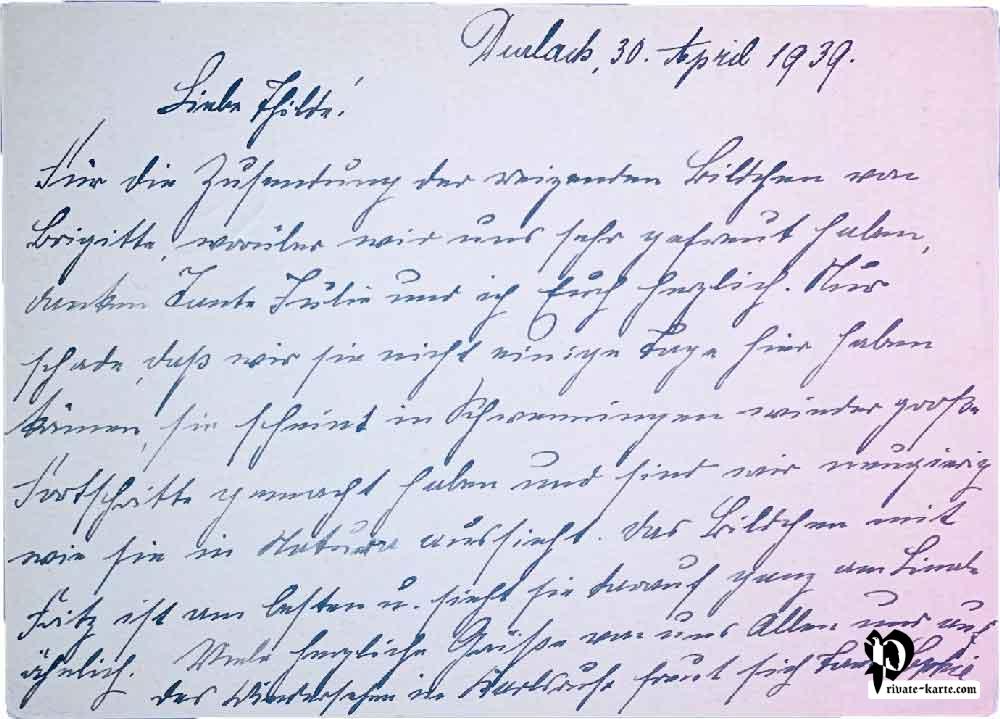 Durlach, 30. April 1939.
Liebe Thilde!
Für die Zusendung der reizenden Bildchen von
Brigitte, worüber wir uns sehr gefreut haben,
danken Tante Julie und ich Euch herzlich. Nur
schade, daß wir sie nicht einige Tage hier haben
können, sie scheint in Schwenningen wieder große
Fortschritte gemacht haben und sind wir neugierig
wie sie in Natura aussieht. Das Bildchen mit
Fritz ist am besten u. sieht sie darauf ganz
ähnlich. Viele herzliche Grüße von uns Allen und auf
das Wiedersehen in Karlsruhe freut sich Tante Sophie
private-karte.com